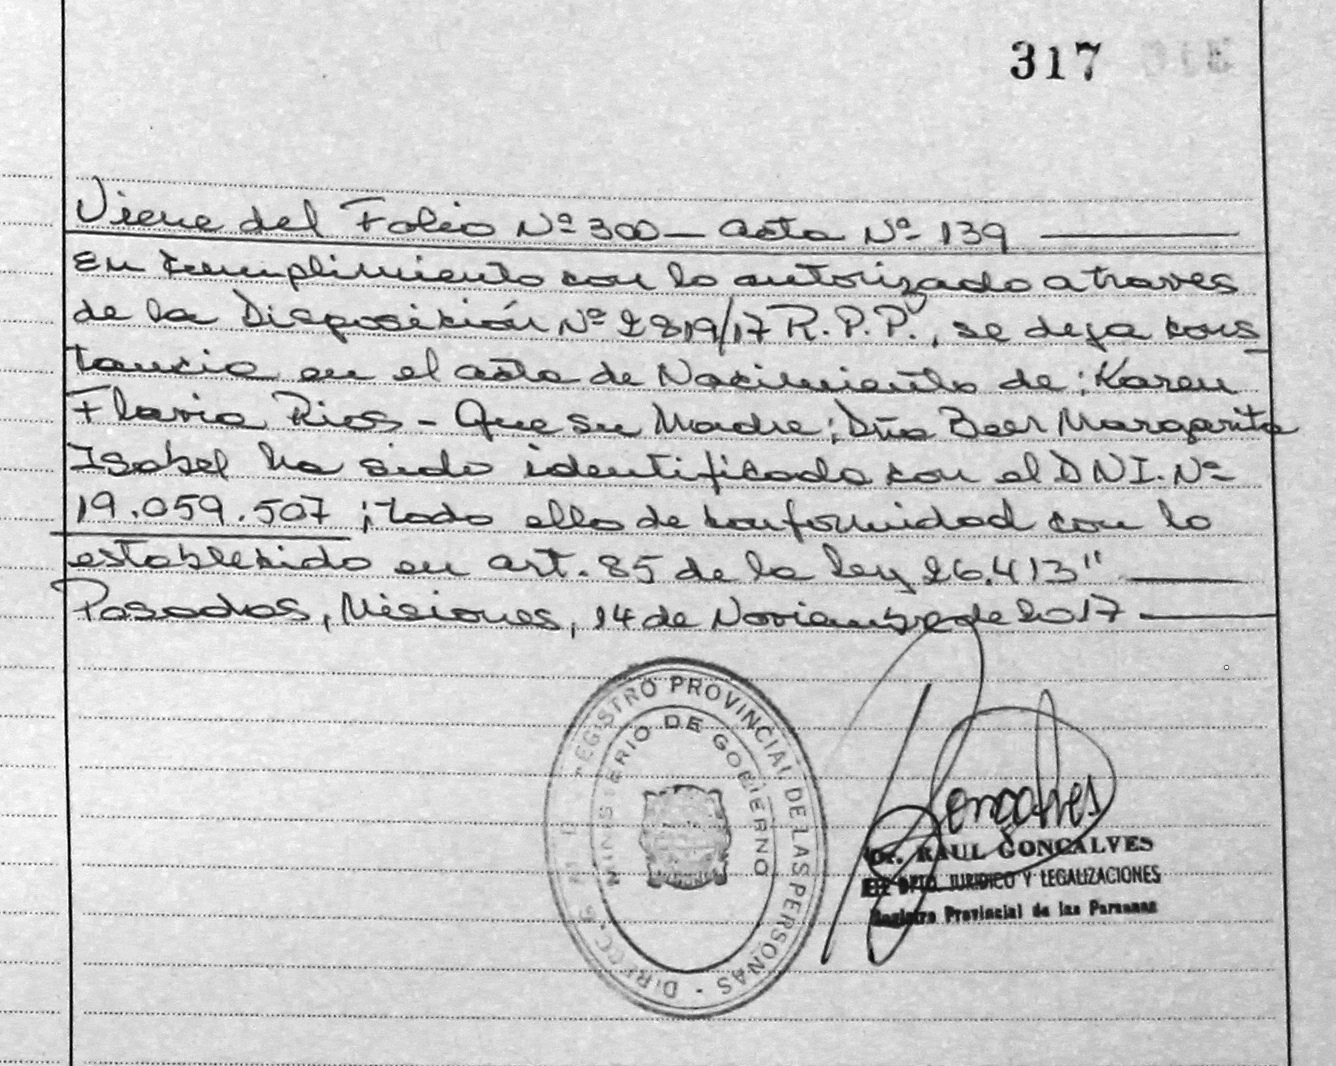 317
Viene del Folio Nº 300 — acta Nº 139
En cumplimiento con lo autorizado a traves
de la Disposición Nº 2819/17 R.P.P., se deja cons
tancia en el acta de Nacimiento de: Karen
Flavia Rios - Que su Madre; Dña Beer Margarita
Isabel ha sido identificada con el DNI. Nº
19.059.507; todo ello de conformidad con lo
establecido en art. 85 de la ley 26.413"
Posadas, Misiones, 14 de Noviembre de 2017
REGISTRO PROVINCIAL DE LAS PERSONAS - DIRECC.
MINISTERIO DE GOBIERNO
Gonçalves
Dr. RAUL GONÇALVES
DPTO. JURIDICO Y LEGALIZACIONES
Registro Provincial de las Personas